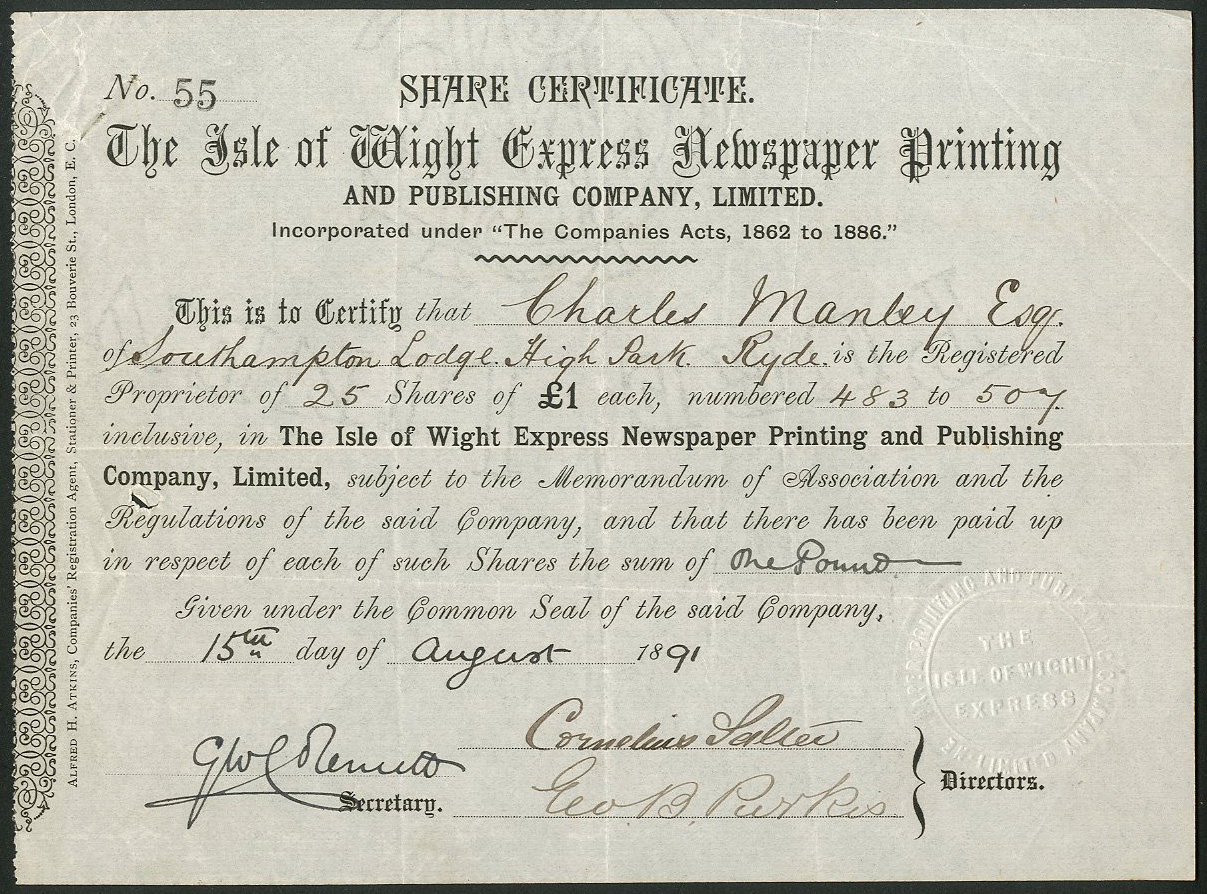 No. 55
SHARE CERTIFICATE.
The Isle of Wight Express Newspaper Printing
AND PUBLISHING COMPANY, LIMITED.
Incorporated under "The Companies Acts, 1862 to 1886."
This is to Certify that Charles Manley Esq.
of Southampton Lodge. High Park. Ryde. is the Registered
Proprietor of 25 Shares of £1 each, numbered 483 to 507
inclusive, in The Isle of Wight Express Newspaper Printing and Publishing
Company, Limited, subject to the Memorandum of Association and the
Regulations of the said Company, and that there has been paid up
in respect of each of such Shares the sum of One Pound
Given under the Common Seal of the said Company,
the 15th day of August 1891
Cornelius Salter
Geo. B. Purkis
Directors.
Secretary.
THE
ISLE OF WIGHT
EXPRESS
PRINTING AND PUBLISHING COMPANY LIMITED
ALFRED H. ATKINS, Companies' Registration Agent, Stationer & Printer, 23 Bouverie St., London, E. C.